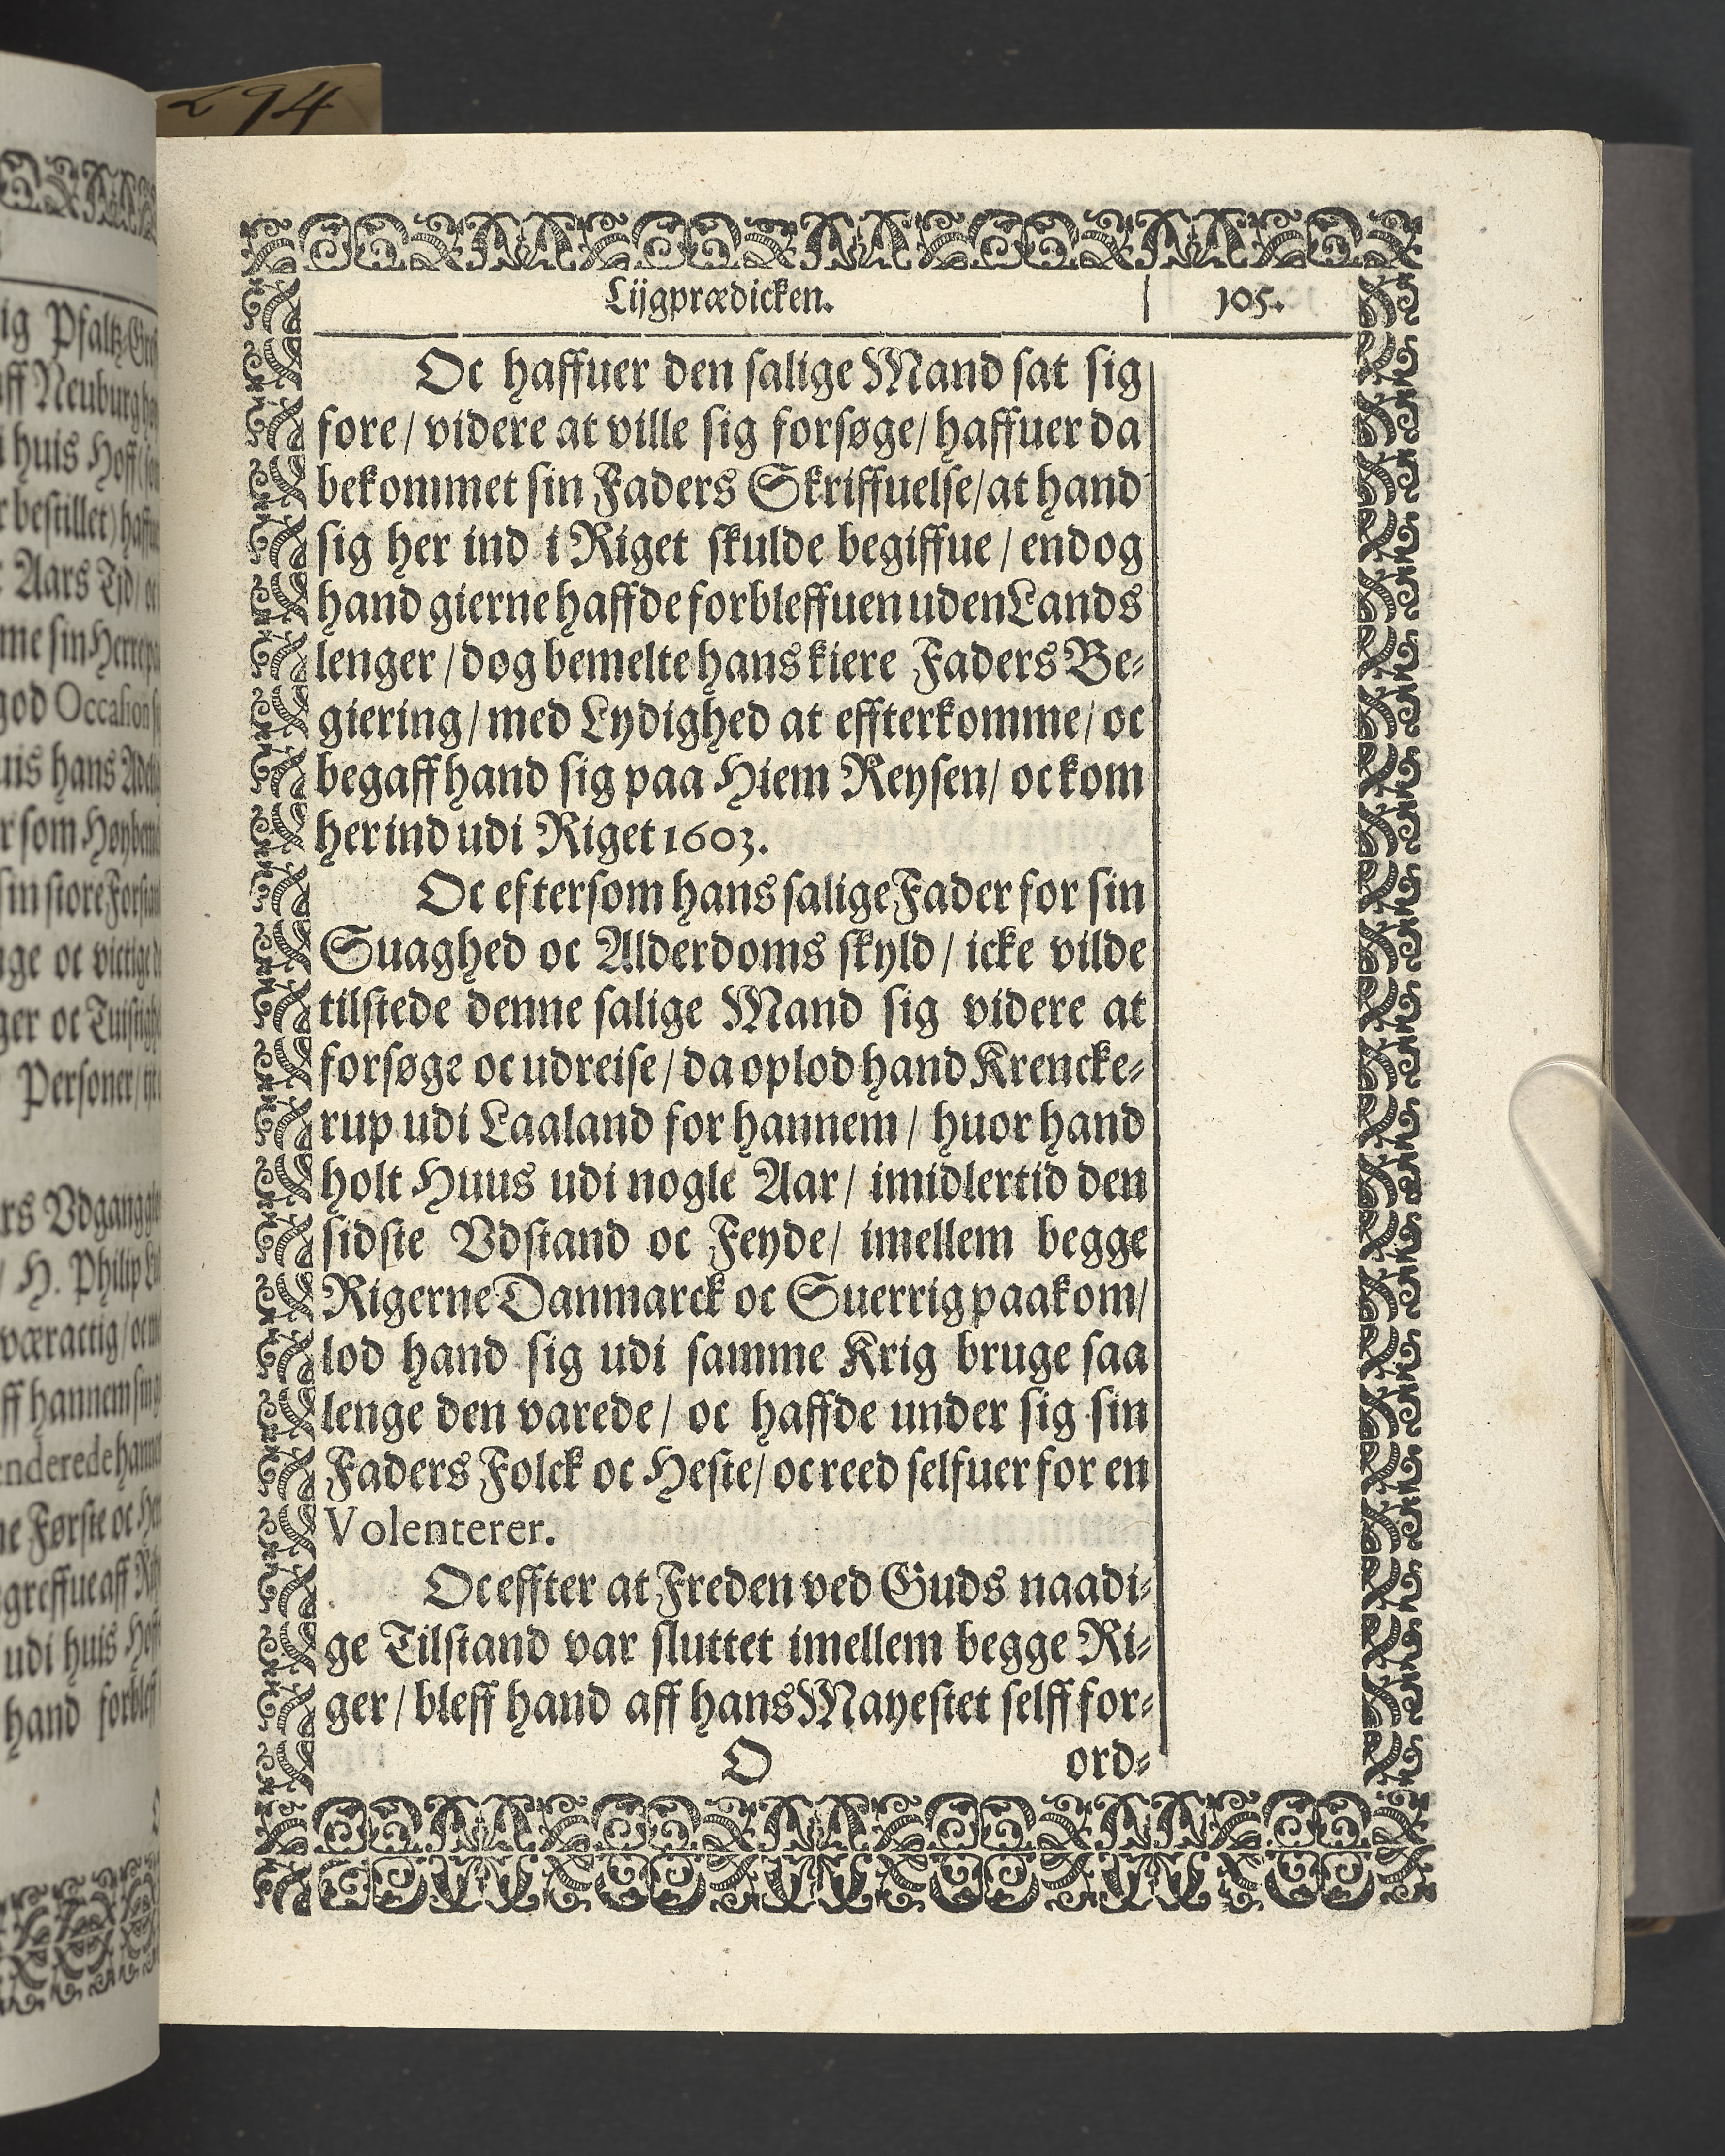 294
ig Pfaltz
aff Neuburg
i huis Hoff/
bestillet)
Aars Tjd/
me sin Herre
god Occasion
uis hans
som
sin store
ge oc victige
ger oc
Personer/
rs Vdgang
/ H. Philip
væractig/
ff hannem
ne Første oc
greffue aff
udi huis
hand
Lijgprædicken.
105.
Oc haffuer den salige Mand sat sig
fore/ videre at ville sig forsøge/ haffuer da
bekommet sin Faders Skriffuelse/ at hand
sig her ind i Riget skulde begiffue/ endog
hand gierne haffde forbleffuen uden Lands
lenger/ dog bemelte hans kiere Faders Be-
giering/ med Lydighed at effterkomme/ oc
begaff hand sig paa Hiem Reysen/ oc kom
her ind udi Riget 1603.
Oc eftersom hans salige Fader for sin
Suaghed oc Alderdoms skyld/ icke vilde
tilstede denne salige Mand sig videre at
forsøge oc udreise/ da oplod hand Krencke-
rup udi Laaland for hannem/ huor hand
holt Huus udi nogle Aar/ imidlertid den
sidste Vdstand oc Feyde/ imellem begge
Rigerne Danmarck oc Suerrig paakom/
lod hand sig udi samme Krig bruge saa
lenge den varede/ oc haffde under sig sin
Faders Folck oc Heste/ oc reed selfuer for en
Volenterer.
Oc effter at Freden ved Guds naadi-
ge Tilstand var sluttet imellem begge Ri-
ger/ bleff hand aff hans Mayestet selff for-
O
ord-